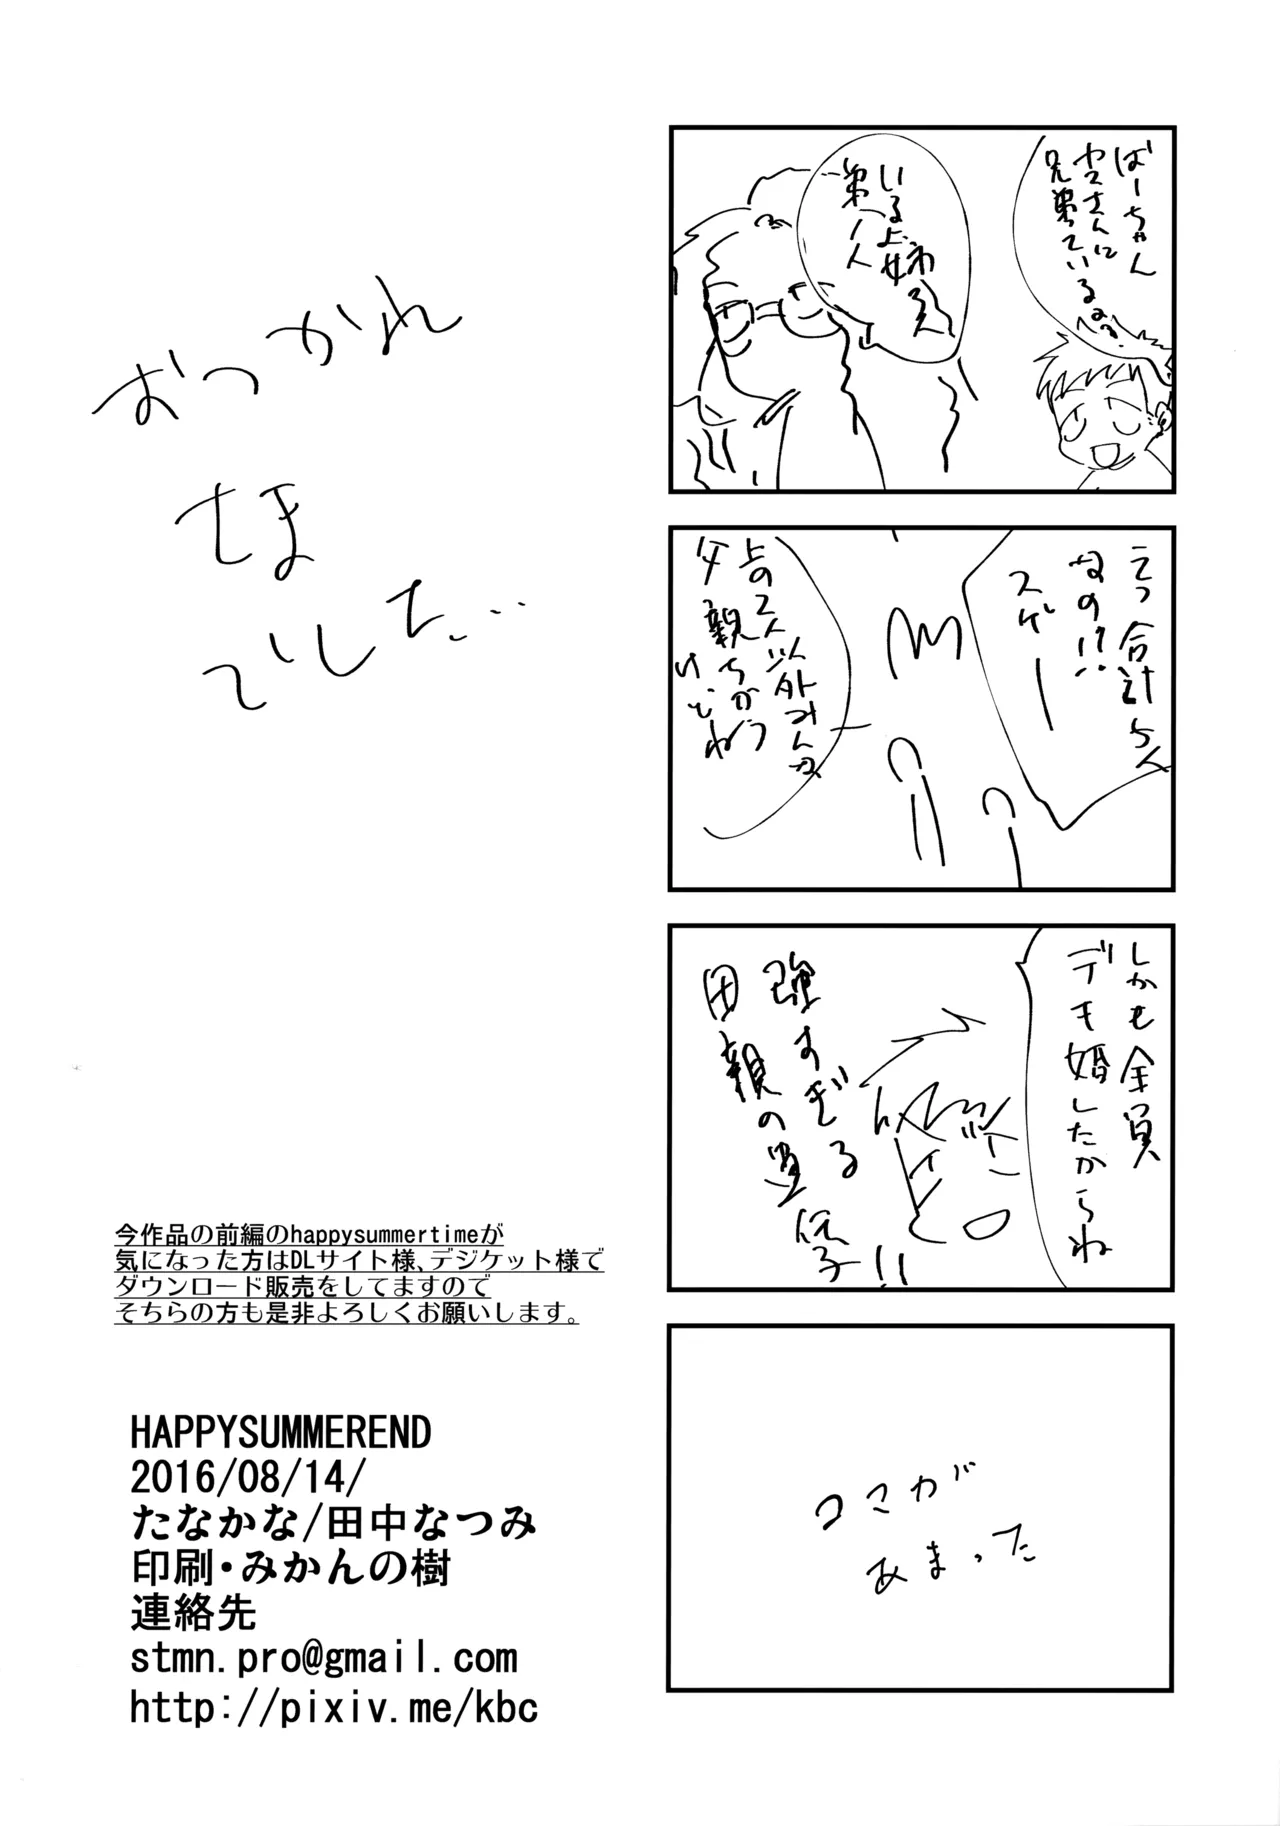 ばーちゃん
ヤスさんに
兄弟っているの?
いる上姉兄
弟一人
えっ合計5人
なの!?
スゲー
上の2人以外みんな
父親ちがう
けどね
しかも全員
デキ婚したからね
強すぎる
母親の遺伝子!!
コマが
あまった
おつかれ
さま
でした…
今作品の前編のhappysummertimeが
気になった方はDLサイト様、デジケット様で
ダウンロード販売をしてますので
そちらの方も是非よろしくお願いします。
HAPPYSUMMEREND
2016/08/14/
たなかな/田中なつみ
印刷・みかんの樹
連絡先
stmn.pro@gmail.com
http://pixiv.me/kbc